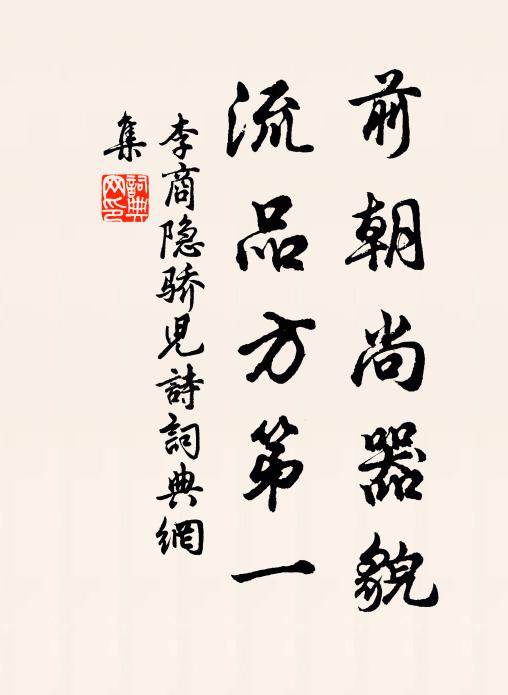 前朝尚器貌
流品方第一
李商隐骄児詩詞典網
集
詞典
网印